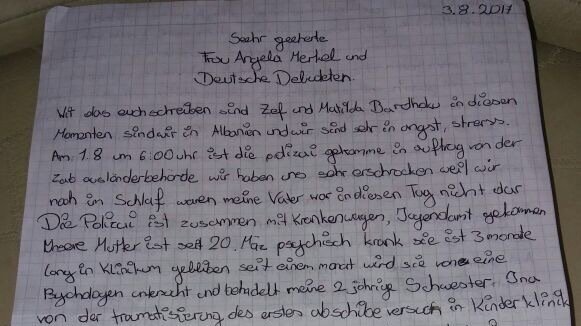 3.8.2017
Seehr geeherte
Frou Angela Merkel und
Deutsche Debudeten.
Wir das euch schreiben sind Zef und Matilda Dardhoku in diesen
Momenten sind wir in Albanien und wir sind sehr in angst, stress.
Am 1.8 um 6:00 uhr ist die polizai gekomme in auftrag von der
Zab ausländerbehörde wir haben uns sehr erschrocken weil wir
noch im Schlaf waren meine Vater war in diesen Tag nicht dar
Die Polizei ist zusammen mit Krankenwagen, Jagendamt gekommen
Unsere Mutter ist seit 20. Mäz psychisch krank sie ist 3 monate
lang in Klinikum geblieben seit einem monat wird sie von eine
Psychologen untersucht und behadelt meine 2 jährige Schwester. Ina
von der traumatisierung des ersten abschibe versuch in Kinder klinck